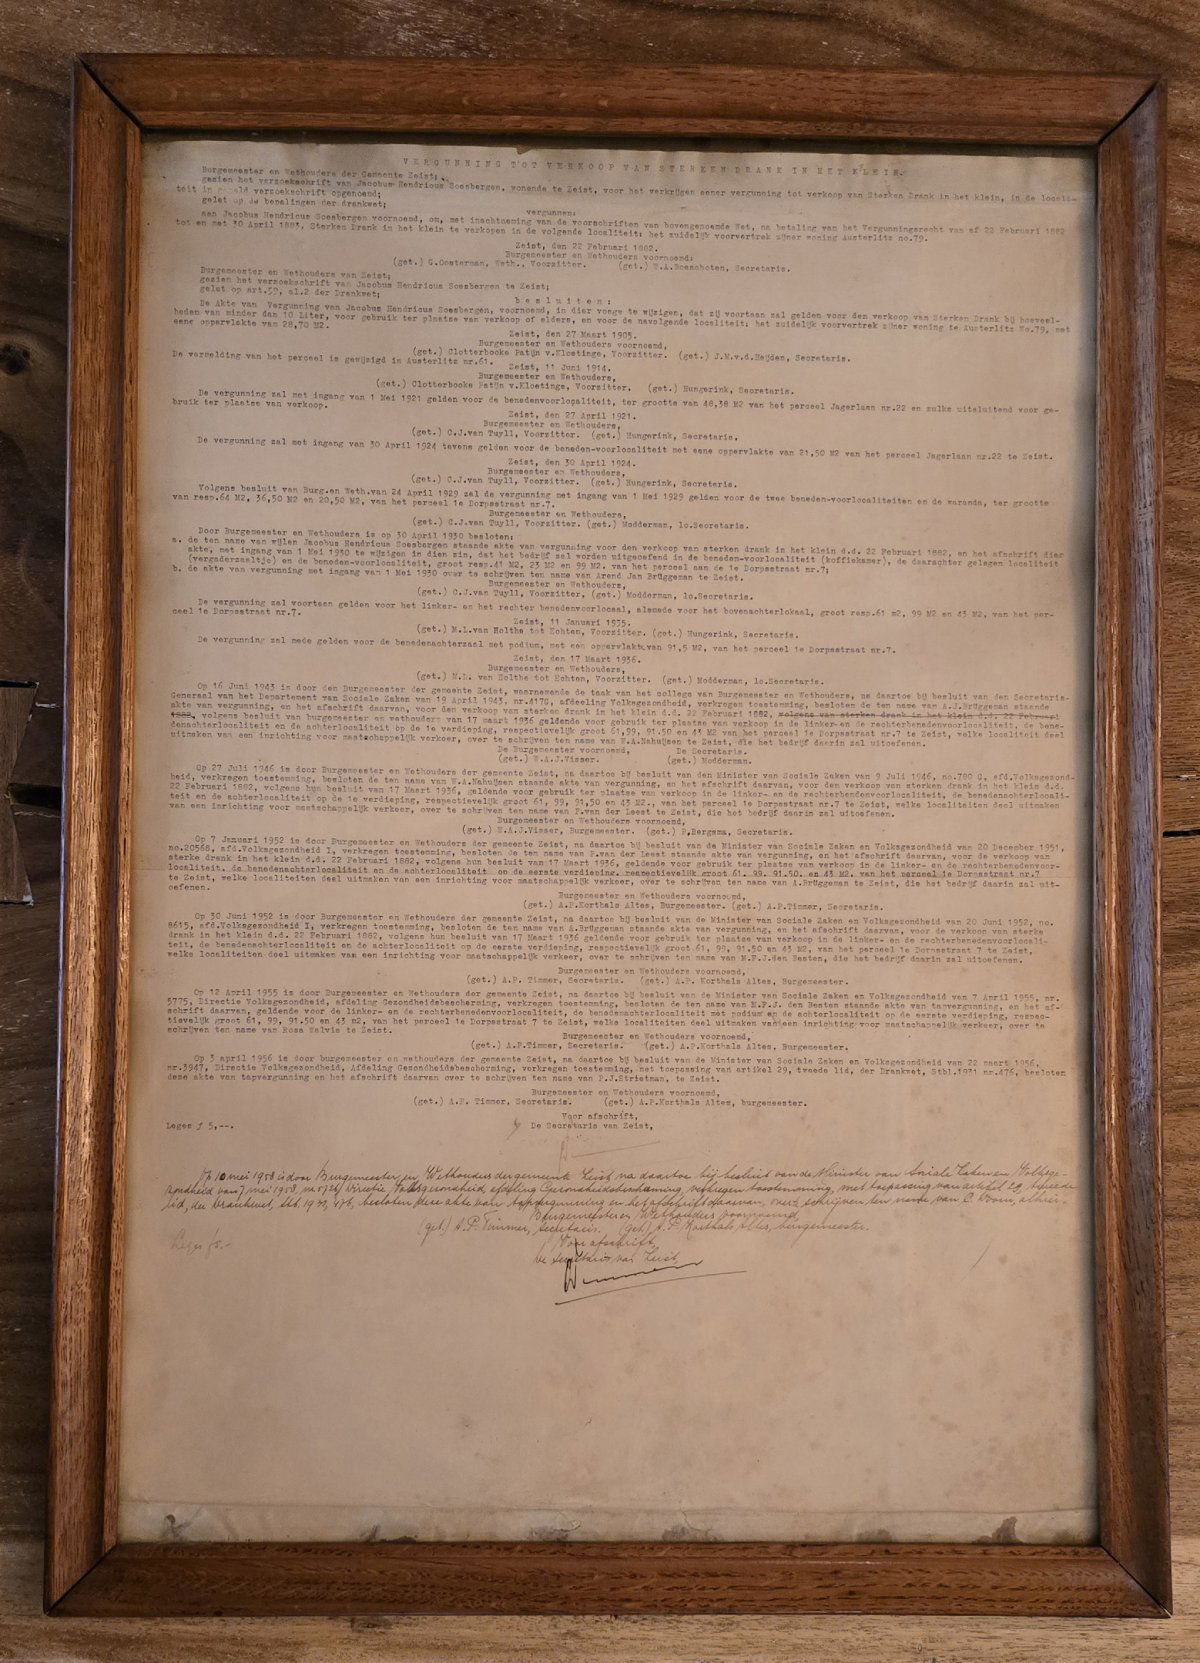 VERGUNNING TOT VERKOOP VAN STERKEN DRANK IN HET KLEIN.
Burgemeester en Wethouders der Gemeente Zeist;
gezien het verzoekschrift van Jacobus Hendricus Soesbergen, wonende te Zeist, voor het verkrijgen eener vergunning tot verkoop van Sterken Drank in het klein, in de locali-
teit in gemeld verzoekschrift opgenoemd;
gelet op de bepalingen der drankwet;
vergunnen:
aan Jacobus Hendricus Soesbergen voornoemd, om, met inachtneming van de voorschriften van bovengenoemde Wet, na betaling van het Vergunningsrecht van af 22 Februari 1882
tot en met 30 April 1883, Sterken Drank in het klein te verkopen in de volgende localiteit: het zuidelijk voorvertrek zijner woning Austerlitz no.79.
Zeist, den 22 Februari 1882.
Burgemeester en Wethouders voornoemd:
(get.) G.Oosterman, Weth., Voorzitter. (get.) T.A.Boeschoten, Secretaris.
Burgemeester en Wethouders van Zeist;
gezien het verzoekschrift van Jacobus Hendricus Soesbergen te Zeist;
gelet op art.59, al.2 der Drankwet;
besluiten:
De Akte van Vergunning van Jacobus Hendricus Soesbergen, voornoemd, in dier voege te wijzigen, dat zij voortaan zal gelden voor den verkoop van Sterken Drank bij hoeveel-
heden van minder dan 10 Liter, voor gebruik ter plaatse van verkoop of elders, en voor de navolgende localiteit: het zuidelijk voorvertrek zijner woning te Austerlitz No.79, met
eene oppervlakte van 28,70 M2.
Zeist, den 27 Maart 1905.
Burgemeester en Wethouders voornoemd,
(get.) Clotterbooke Patijn v.Kloetinge, Voorzitter. (get.) J.M.v.d.Heijden, Secretaris.
De vermelding van het perceel is gewijzigd in Austerlitz nr.61.
Zeist, 11 Juni 1914.
Burgemeester en Wethouders,
(get.) Clotterbooke Patijn v.Kloetinge, Voorzitter. (get.) Hungerink, Secretaris.
De vergunning zal met ingang van 1 Mei 1921 gelden voor de benedenvoorlocaliteit, ter grootte van 48,38 M2 van het perceel Jagerlaan nr.22 en zulks uitsluitend voor ge-
bruik ter plaatse van verkoop.
Zeist, den 27 April 1921.
Burgemeester en Wethouders,
(get.) C.J.van Tuyll, Voorzitter. (get.) Hungerink, Secretaris.
De vergunning zal met ingang van 30 April 1924 tevens gelden voor de beneden-voorlocaliteit met eene oppervlakte van 21,50 M2 van het perceel Jagerlaan nr.22 te Zeist.
Zeist, den 30 April 1924.
Burgemeester en Wethouders,
(get.) C.J.van Tuyll, Voorzitter. (get.) Hungerink, Secretaris.
Volgens besluit van Burg.en Weth.van 24 April 1929 zal de vergunning met ingang van 1 Mei 1929 gelden voor de twee beneden-voorlocaliteiten en de waranda, ter grootte
van resp.64 M2, 36,50 M2 en 20,50 M2, van het perceel 1e Dorpsstraat nr.7.
Burgemeester en Wethouders,
(get.) C.J.van Tuyll, Voorzitter. (get.) Modderman, lo.Secretaris.
Door Burgemeester en Wethouders is op 30 April 1930 besloten:
a. de ten name van wijlen Jacobus Hendricus Soesbergen staande akte van vergunning voor den verkoop van sterken drank in het klein d.d. 22 Februari 1882, en het afschrift dier
akte, met ingang van 1 Mei 1930 te wijzigen in dien zin, dat het bedrijf zal worden uitgeoefend in de beneden-voorlocaliteit (koffiekamer), de daarachter gelegen localiteit
(vergaderzaaltje) en de beneden-voorlocaliteit, groot resp.41 M2, 23 M2 en 99 M2. van het perceel aan de 1e Dorpsstraat nr.7;
b. de akte van vergunning met ingang van 1 Mei 1930 over te schrijven ten name van Arend Jan Brüggeman te Zeist.
Burgemeester en Wethouders,
(get.) C.J.van Tuyll, Voorzitter, (get.) Modderman, lo.Secretaris.
De vergunning zal voortaan gelden voor het linker- en het rechter benedenvoorlocaal, alsmede voor het bovenachterlokaal, groot resp.61 m2, 99 M2 en 43 M2, van het per-
ceel 1e Dorpsstraat nr.7.
Zeist, 11 Januari 1935.
(get.) M.L.van Holthe tot Echten, Voorzitter. (get.) Hungerink, Secretaris.
De vergunning zal mede gelden voor de benedenachterzaal met podium, met een oppervlakte van 91,5 M2, van het perceel 1e Dorpsstraat nr.7.
Zeist, den 17 Maart 1936.
Burgemeester en Wethouders,
(get.) M.L. van Holthe tot Echten, Voorzitter. (get.) Modderman, lo.Secretaris.
Op 16 Juni 1943 is door den Burgemeester der gemeente Zeist, waarnemende de taak van het college van Burgemeester en Wethouders, na daartoe bij besluit van den Secretaris-
Generaal van het Departement van Sociale Zaken van 19 April 1943, nr.4170, afdeeling Volksgezondheid, verkregen toestemming, besloten de ten name van A.J.Brüggeman staande
akte van vergunning, en het afschrift daarvan, voor den verkoop van sterken drank in het klein d.d. 22 Februari 1882, volgens van sterken drank in het klein d.d. 22 Februari
1882, volgens besluit van burgemeester en wethouders van 17 maart 1936 geldende voor gebruik ter plaatse van verkoop in de linker-en de rechterbenedenvoorlocaliteit, de bene-
denachterlocaliteit en de achterlocaliteit op de 1e verdieping, respectievelijk groot 61,99, 91.50 en 43 M2 van het perceel 1e Dorpsstraat nr.7 te Zeist, welke localiteit deel
uitmaken van een inrichting voor maatschappelijk verkeer, over te schrijven ten name van W.A.Nahuijsen te Zeist, die het bedrijf daarin zal uitoefenen.
De Burgemeester voornoemd, De Secretaris.
(get.) W.A.J.Visser. (get.) Modderman.
Op 27 Juli 1946 is door Burgemeester en Wethouders der gemeente Zeist, na daartoe bij besluit van den Minister van Sociale Zaken van 9 Juli 1946, no.780 G, afd.Volksgezond-
heid, verkregen toestemming, besloten de ten name van W.A.Nahuijsen staande akte van vergunning, en het afschrift daarvan, voor den verkoop van sterken drank in het klein d.d.
22 Februari 1882, volgens hun besluit van 17 Maart 1936, geldende voor gebruik ter plaatse van verkoop in de linker- en de rechterbenedenvoorlocaliteit, de benedenachterlocali-
teit en de achterlocaliteit op de 1e verdieping, respectievelijk groot 61, 99, 91,50 en 43 M2., van het perceel 1e Dorpsstraat nr.7 te Zeist, welke localiteiten deel uitmaken
van een inrichting voor maatschappelijk verkeer, over te schrijven ten name van P.van der Leest te Zeist, die het bedrijf daarin zal uitoefenen.
Burgemeester en Wethouders voornoemd,
(get.) W.A.J.Visser, Burgemeester. (get.) P.Bergsma, Secretaris.
Op 7 Januari 1952 is door Burgemeester en Wethouders der gemeente Zeist, na daartoe bij besluit van de Minister van Sociale Zaken en Volksgezondheid van 20 December 1951,
no.20568, afd.Volksgezondheid I, verkregen toestemming, besloten de ten name van P.van der Leest staande akte van vergunning, en het afschrift daarvan, voor de verkoop van
sterke drank in het klein d.d. 22 Februari 1882, volgens hun besluit van 17 Maart 1936, geldende voor gebruik ter plaatse van verkoop in de linker- en de rechterbenedenvoor-
localiteit, de benedenachterlocaliteit en de achterlocaliteit op de eerste verdieping, respectievelijk groot 61, 99, 91.50, en 43 M2, van het perceel 1e Dorpsstraat nr.7
te Zeist, welke localiteiten deel uitmaken van een inrichting voor maatschappelijk verkeer, over te schrijven ten name van A.Brüggeman te Zeist, die het bedrijf daarin zal uit-
oefenen.
Burgemeester en Wethouders voornoemd,
(get.) A.P.Korthals Altes, Burgemeester. (get.) A.P.Timmer, Secretaris.
Op 30 Juni 1952 is door Burgemeester en Wethouders der gemeente Zeist, na daartoe bij besluit van de Minister van Sociale Zaken en Volksgezondheid van 20 Juni 1952, no.
8615, afd.Volksgezondheid I, verkregen toestemming, besloten de ten name van A.Brüggeman staande akte van vergunning, en het afschrift daarvan, voor de verkoop van sterke
drank in het klein d.d. 22 Februari 1882, volgens hun besluit van 17 Maart 1936 geldende voor gebruik ter plaatse van verkoop in de linker- en de rechterbenedenvoorlocali-
teit, de benedenachterlocaliteit en de achterlocaliteit op de eerste verdieping, respectievelijk groot 61, 99, 91.50 en 43 M2, van het perceel 1e Dorpsstraat 7 te Zeist,
welke localiteiten deel uitmaken van een inrichting voor maatschappelijk verkeer, over te schrijven ten name van M.F.J.den Besten, die het bedrijf daarin zal uitoefenen.
Burgemeester en Wethouders voornoemd,
(get.) A.P. Timmer, Secretaris. (get.) A.P. Korthals Altes, Burgemeester.
Op 12 April 1955 is door Burgemeester en Wethouders der gemeente Zeist, na daartoe bij besluit van de Minister van Sociale Zaken en Volksgezondheid van 7 April 1955, nr.
5775, Directie Volksgezondheid, afdeling Gezondheidsbescherming, verkregen toestemming, besloten de ten name van M.F.J. den Besten staande akte van tapvergunning, en het af-
schrift daarvan, geldende voor de linker- en de rechterbenedenvoorlocaliteit, de benedenachterlocaliteit met podium en de achterlocaliteit op de eerste verdieping, respec-
tievelijk groot 61, 99, 91.50 en 43 m2, van het perceel 1e Dorpsstraat 7 te Zeist, welke localiteiten deel uitmaken van een inrichting voor maatschappelijk verkeer, over te
schrijven ten name van Rosa Kelvis te Zeist.
Burgemeester en Wethouders voornoemd,
(get.) A.P.Timmer, Secretaris. (get.) A.P.Korthals Altes, Burgemeester.
Op 3 april 1956 is door burgemeester en wethouders der gemeente Zeist, na daartoe bij besluit van de Minister van Sociale Zaken en Volksgezondheid van 22 maart 1956,
nr.3947, Directie Volksgezondheid, Afdeling Gezondheidsbescherming, verkregen toestemming, met toepassing van artikel 29, tweede lid, der Drankwet, Stbl.1931 nr.476, besloten
deze akte van tapvergunning en het afschrift daarvan over te schrijven ten name van P.J.Strietman, te Zeist.
Burgemeester en Wethouders voornoemd,
(get.) A.P. Timmer, Secretaris. (get.) A.P.Korthals Altes, burgemeester.
Voor afschrift,
Leges f 5,--. De Secretaris van Zeist,
Op 10 mei 1958 is door Burgemeester en Wethouders der gemeente Zeist, na daartoe bij besluit van de Minister van Sociale Zaken en Volksge-
zondheid van 7 mei 1958, Directie Volksgezondheid, afdeling Gezondheidsbescherming, verkregen toestemming, met toepassing van artikel 29, tweede
lid, der Drankwet, Stb. 1931, 476, besloten deze akte van tapvergunning en het afschrift daarvan, over te schrijven ten name van C. Doorn, alhier.
Burgemeester en Wethouders voornoemd,
(get.) A.P. Timmer, secretaris. (get.) A.P. Korthals Altes, burgemeester.
Voor afschrift,
Leges f 5.- De Secretaris van Zeist,